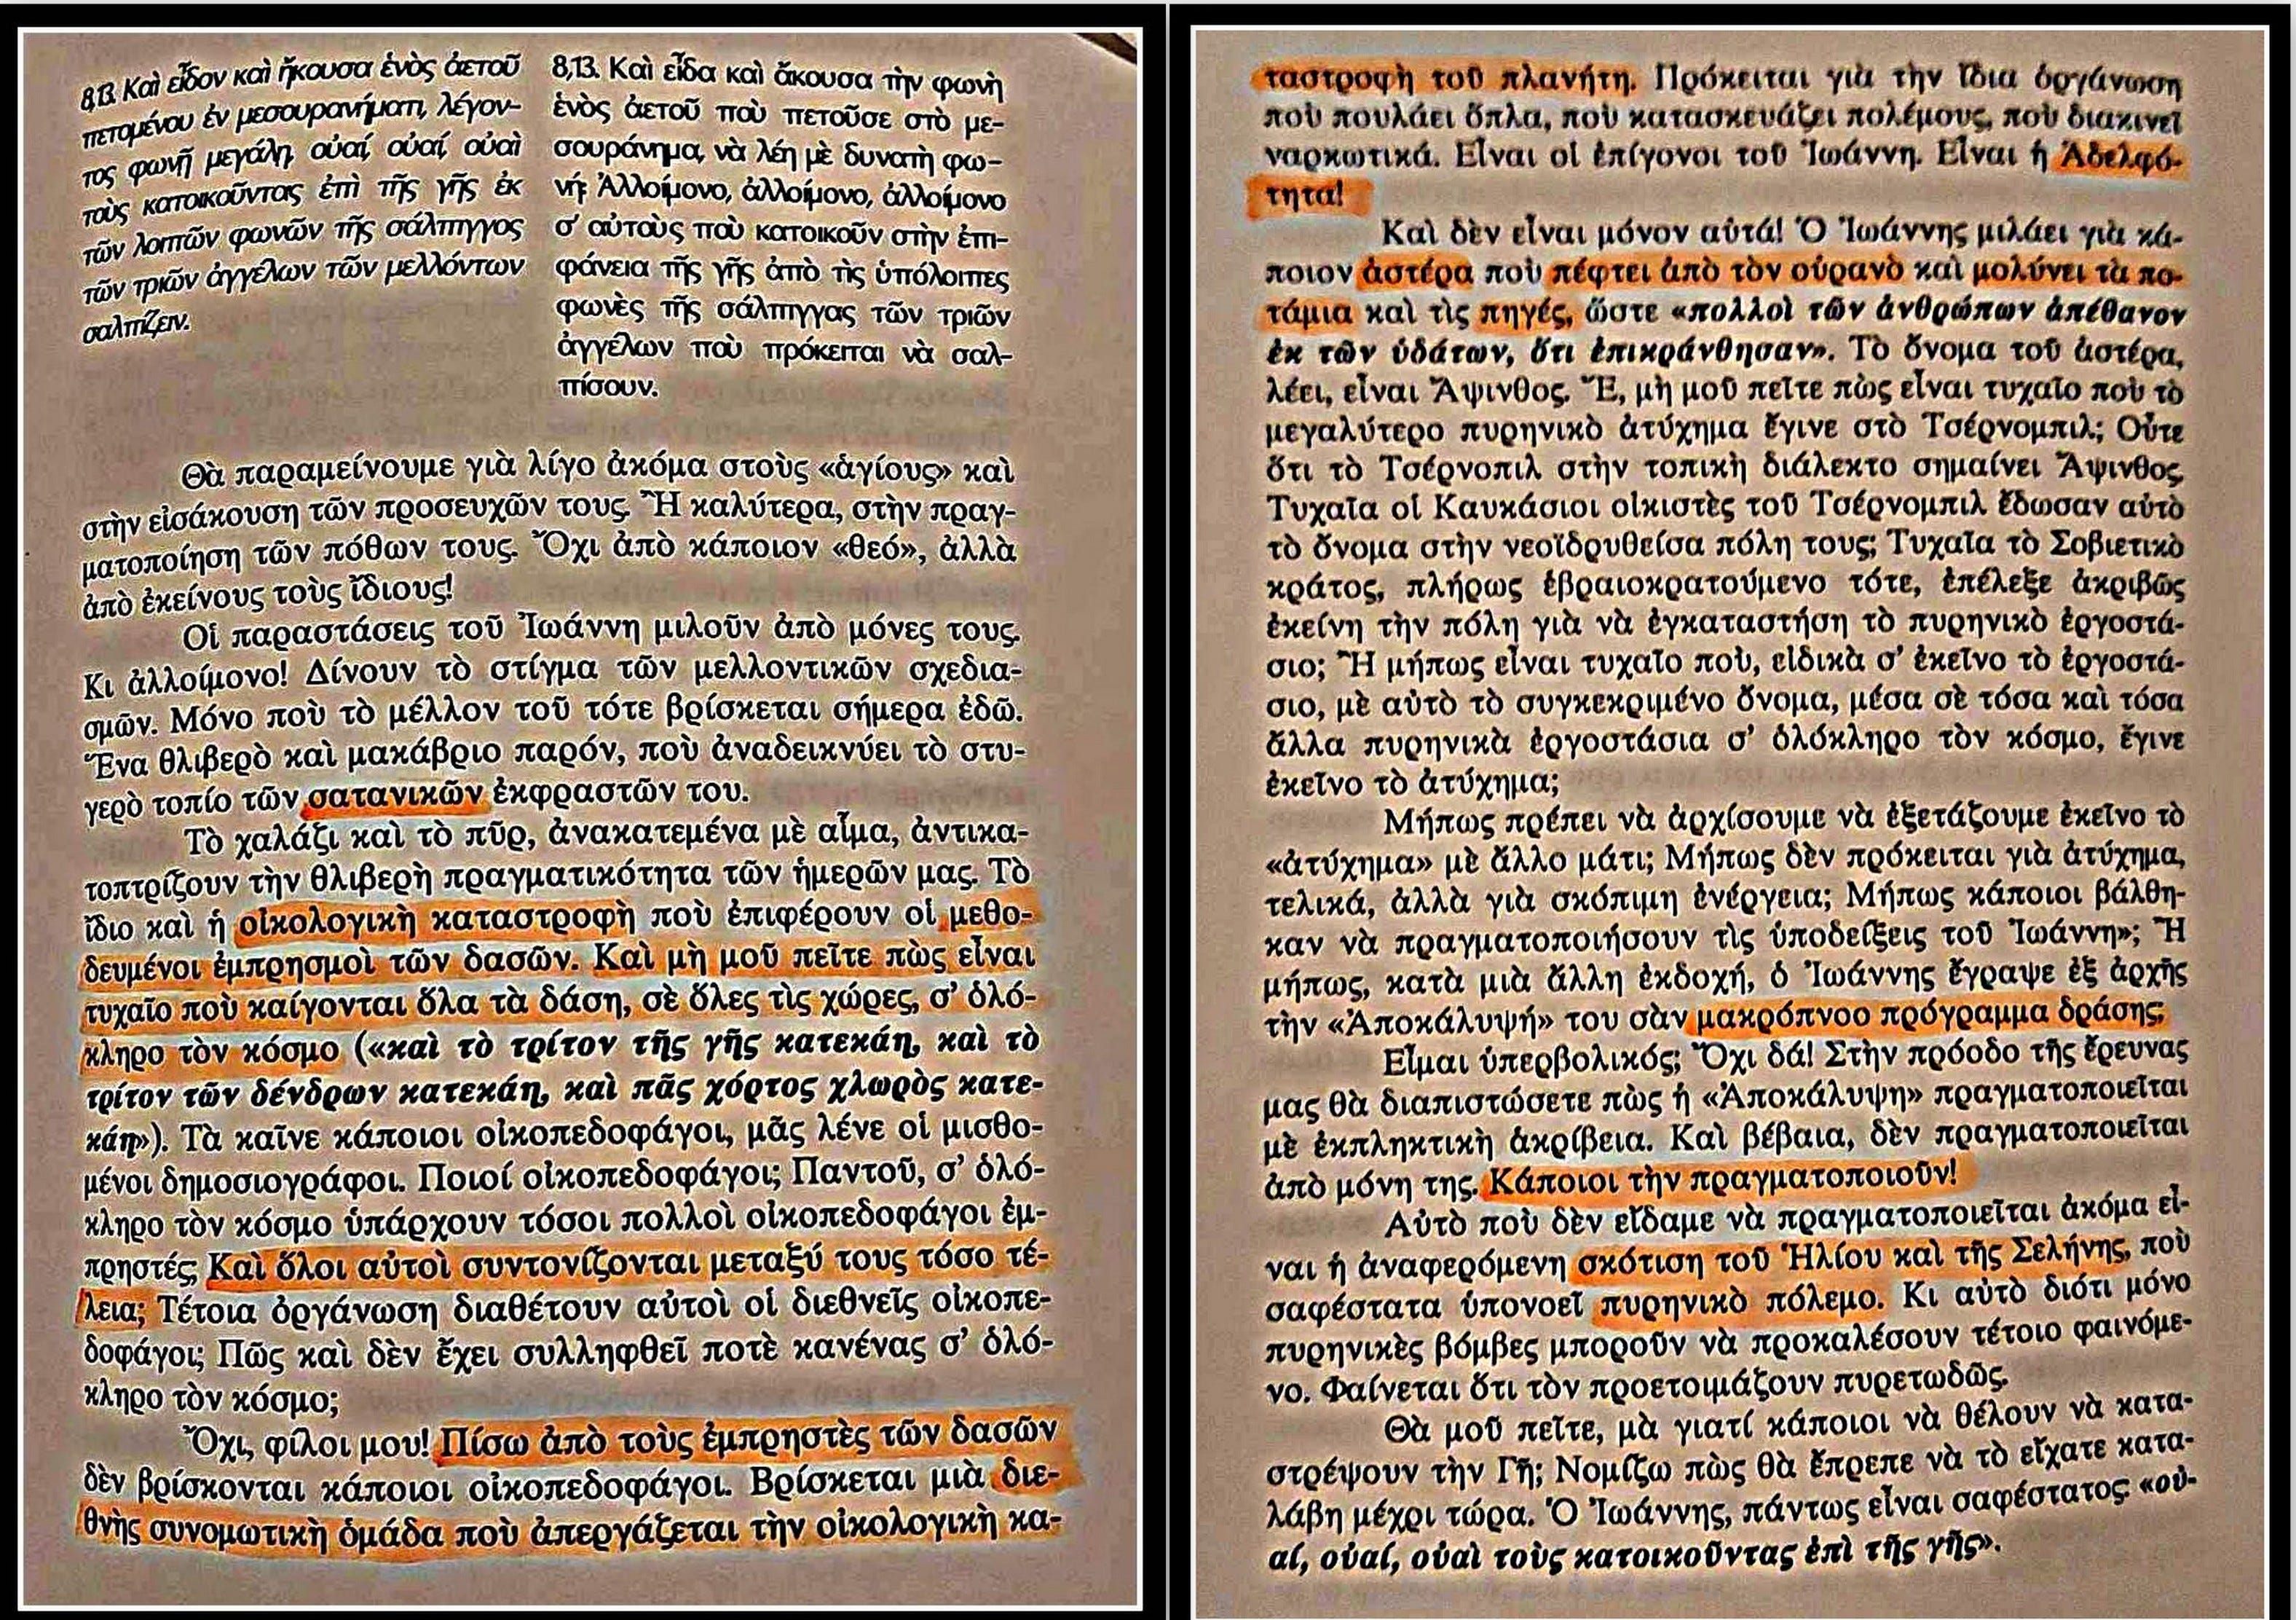 8,13. Καὶ εἶδον καὶ ἤκουσα ἑνὸς ἀετοῦ
πετομένου ἐν μεσουρανήματι, λέγον-
τος φωνῇ μεγάλῃ, οὐαί, οὐαί, οὐαὶ
τοὺς κατοικοῦντας ἐπὶ τῆς γῆς ἐκ
τῶν λοιπῶν φωνῶν τῆς σάλπιγγος
τῶν τριῶν ἀγγέλων τῶν μελλόντων
σαλπίζειν.
8,13. Καὶ εἶδα καὶ ἄκουσα τὴν φωνὴ
ἑνὸς ἀετοῦ ποὺ πετοῦσε στὸ με-
σουράνημα, νὰ λέη μὲ δυνατὴ φω-
νή: Ἀλλοίμονο, ἀλλοίμονο, ἀλλοίμονο
σ' αὐτοὺς ποὺ κατοικοῦν στὴν ἐπι-
φάνεια τῆς γῆς ἀπὸ τὶς ὑπόλοιπες
φωνὲς τῆς σάλπιγγας τῶν τριῶν
ἀγγέλων ποὺ πρόκειται νὰ σαλ-
πίσουν.
Θὰ παραμείνουμε γιὰ λίγο ἀκόμα στοὺς «ἁγίους» καὶ
στὴν εἰσάκουση τῶν προσευχῶν τους. Ἢ καλύτερα, στὴν πραγ-
ματοποίηση τῶν πόθων τους. Ὄχι ἀπὸ κάποιον «θεό», ἀλλὰ
ἀπὸ ἐκείνους τοὺς ἴδιους!
Οἱ παραστάσεις τοῦ Ἰωάννη μιλοῦν ἀπὸ μόνες τους.
Κι ἀλλοίμονο! Δίνουν τὸ στίγμα τῶν μελλοντικῶν σχεδια-
σμῶν. Μόνο ποὺ τὸ μέλλον τοῦ τότε βρίσκεται σήμερα ἐδῶ.
Ἕνα θλιβερὸ καὶ μακάβριο παρόν, ποὺ ἀναδεικνύει τὸ στυ-
γερὸ τοπίο τῶν σατανικῶν ἐκφραστῶν του.
Τὸ χαλάζι καὶ τὸ πῦρ, ἀνακατεμένα μὲ αἷμα, ἀντικα-
τοπτρίζουν τὴν θλιβερὴ πραγματικότητα τῶν ἡμερῶν μας. Τὸ
ἴδιο καὶ ἡ οἰκολογικὴ καταστροφὴ ποὺ ἐπιφέρουν οἱ μεθο-
δευμένοι ἐμπρησμοὶ τῶν δασῶν. Καὶ μὴ μοῦ πεῖτε πὼς εἶναι
τυχαῖο ποὺ καίγονται ὅλα τὰ δάση, σὲ ὅλες τὶς χώρες, σ' ὁλό-
κληρο τὸν κόσμο («καὶ τὸ τρίτον τῆς γῆς κατεκάη, καὶ τὸ
τρίτον τῶν δένδρων κατεκάη, καὶ πᾶς χόρτος χλωρὸς κατε-
κάη»). Τὰ καῖνε κάποιοι οἰκοπεδοφάγοι, μᾶς λένε οἱ μισθο-
μένοι δημοσιογράφοι. Ποιοί οἰκοπεδοφάγοι; Παντοῦ, σ' ὁλό-
κληρο τὸν κόσμο ὑπάρχουν τόσοι πολλοὶ οἰκοπεδοφάγοι ἐμ-
πρηστές; Καὶ ὅλοι αὐτοὶ συντονίζονται μεταξύ τους τόσο τέ-
λεια; Τέτοια ὀργάνωση διαθέτουν αὐτοὶ οἱ διεθνεῖς οἰκοπε-
δοφάγοι; Πῶς καὶ δὲν ἔχει συλληφθεῖ ποτὲ κανένας σ' ὁλό-
κληρο τὸν κόσμο;
Ὄχι, φίλοι μου! Πίσω ἀπὸ τοὺς ἐμπρηστὲς τῶν δασῶν
δὲν βρίσκονται κάποιοι οἰκοπεδοφάγοι. Βρίσκεται μιὰ διε-
θνὴς συνομωτικὴ ὁμάδα ποὺ ἀπεργάζεται τὴν οἰκολογικὴ κα-
ταστροφὴ τοῦ πλανήτη. Πρόκειται γιὰ τὴν ἴδια ὀργάνωση
ποὺ πουλάει ὅπλα, ποὺ κατασκευάζει πολέμους, ποὺ διακινεῖ
ναρκωτικά. Εἶναι οἱ ἐπίγονοι τοῦ Ἰωάννη. Εἶναι ἡ Ἀδελφό-
τητα!
Καὶ δὲν εἶναι μόνον αὐτά! Ὁ Ἰωάννης μιλάει γιὰ κά-
ποιον ἀστέρα ποὺ πέφτει ἀπὸ τὸν οὐρανὸ καὶ μολύνει τὰ πο-
τάμια καὶ τὶς πηγές, ὥστε «πολλοὶ τῶν ἀνθρώπων ἀπέθανον
ἐκ τῶν ὑδάτων, ὅτι ἐπικράνθησαν». Τὸ ὄνομα τοῦ ἀστέρα,
λέει, εἶναι Ἄψινθος. Ἔ, μὴ μοῦ πεῖτε πὼς εἶναι τυχαῖο ποὺ τὸ
μεγαλύτερο πυρηνικὸ ἀτύχημα ἔγινε στὸ Τσέρνομπιλ; Οὔτε
ὅτι τὸ Τσέρνοπιλ στὴν τοπικὴ διάλεκτο σημαίνει Ἄψινθος.
Τυχαῖα οἱ Καυκάσιοι οἰκιστὲς τοῦ Τσέρνομπιλ ἔδωσαν αὐτὸ
τὸ ὄνομα στὴν νεοϊδρυθείσα πόλη τους; Τυχαῖα τὸ Σοβιετικὸ
κράτος, πλήρως ἑβραιοκρατούμενο τότε, ἐπέλεξε ἀκριβῶς
ἐκείνη τὴν πόλη γιὰ νὰ ἐγκαταστήση τὸ πυρηνικὸ ἐργοστά-
σιο; Ἢ μήπως εἶναι τυχαῖο ποὺ, εἰδικὰ σ' ἐκεῖνο τὸ ἐργοστά-
σιο, μὲ αὐτὸ τὸ συγκεκριμένο ὄνομα, μέσα σὲ τόσα καὶ τόσα
ἄλλα πυρηνικὰ ἐργοστάσια σ' ὁλόκληρο τὸν κόσμο, ἔγινε
ἐκεῖνο τὸ ἀτύχημα;
Μήπως πρέπει νὰ ἀρχίσουμε νὰ ἐξετάζουμε ἐκεῖνο τὸ
«ἀτύχημα» μὲ ἄλλο μάτι; Μήπως δὲν πρόκειται γιὰ ἀτύχημα,
τελικά, ἀλλὰ γιὰ σκόπιμη ἐνέργεια; Μήπως κάποιοι βάλθη-
καν νὰ πραγματοποιήσουν τὶς ὑποδείξεις τοῦ Ἰωάννη»; Ἢ
μήπως, κατὰ μιὰ ἄλλη ἐκδοχή, ὁ Ἰωάννης ἔγραψε ἐξ ἀρχῆς
τὴν «Ἀποκάλυψή» του σὰν μακρόπνοο πρόγραμμα δράσης;
Εἶμαι ὑπερβολικός; Ὄχι δά! Στὴν πρόοδο τῆς ἔρευνας
μας θὰ διαπιστώσετε πὼς ἡ «Ἀποκάλυψη» πραγματοποιεῖται
μὲ ἐκπληκτικὴ ἀκρίβεια. Καὶ βέβαια, δὲν πραγματοποιεῖται
ἀπὸ μόνη της. Κάποιοι τὴν πραγματοποιοῦν!
Αὐτὸ ποὺ δὲν εἴδαμε νὰ πραγματοποιεῖται ἀκόμα εἶ-
ναι ἡ ἀναφερόμενη σκότιση τοῦ Ἡλίου καὶ τῆς Σελήνης, ποὺ
σαφέστατα ὑπονοεῖ πυρηνικὸ πόλεμο. Κι αὐτὸ διότι μόνο
πυρηνικὲς βόμβες μποροῦν νὰ προκαλέσουν τέτοιο φαινόμε-
νο. Φαίνεται ὅτι τὸν προετοιμάζουν πυρετωδῶς.
Θὰ μοῦ πεῖτε, μὰ γιατί κάποιοι νὰ θέλουν νὰ κατα-
στρέψουν τὴν Γῆ; Νομίζω πὼς θὰ ἔπρεπε νὰ τὸ εἴχατε κατα-
λάβη μέχρι τώρα. Ὁ Ἰωάννης, πάντως εἶναι σαφέστατος: «οὐ-
αί, οὐαί, οὐαὶ τοὺς κατοικοῦντας ἐπὶ τῆς γῆς».